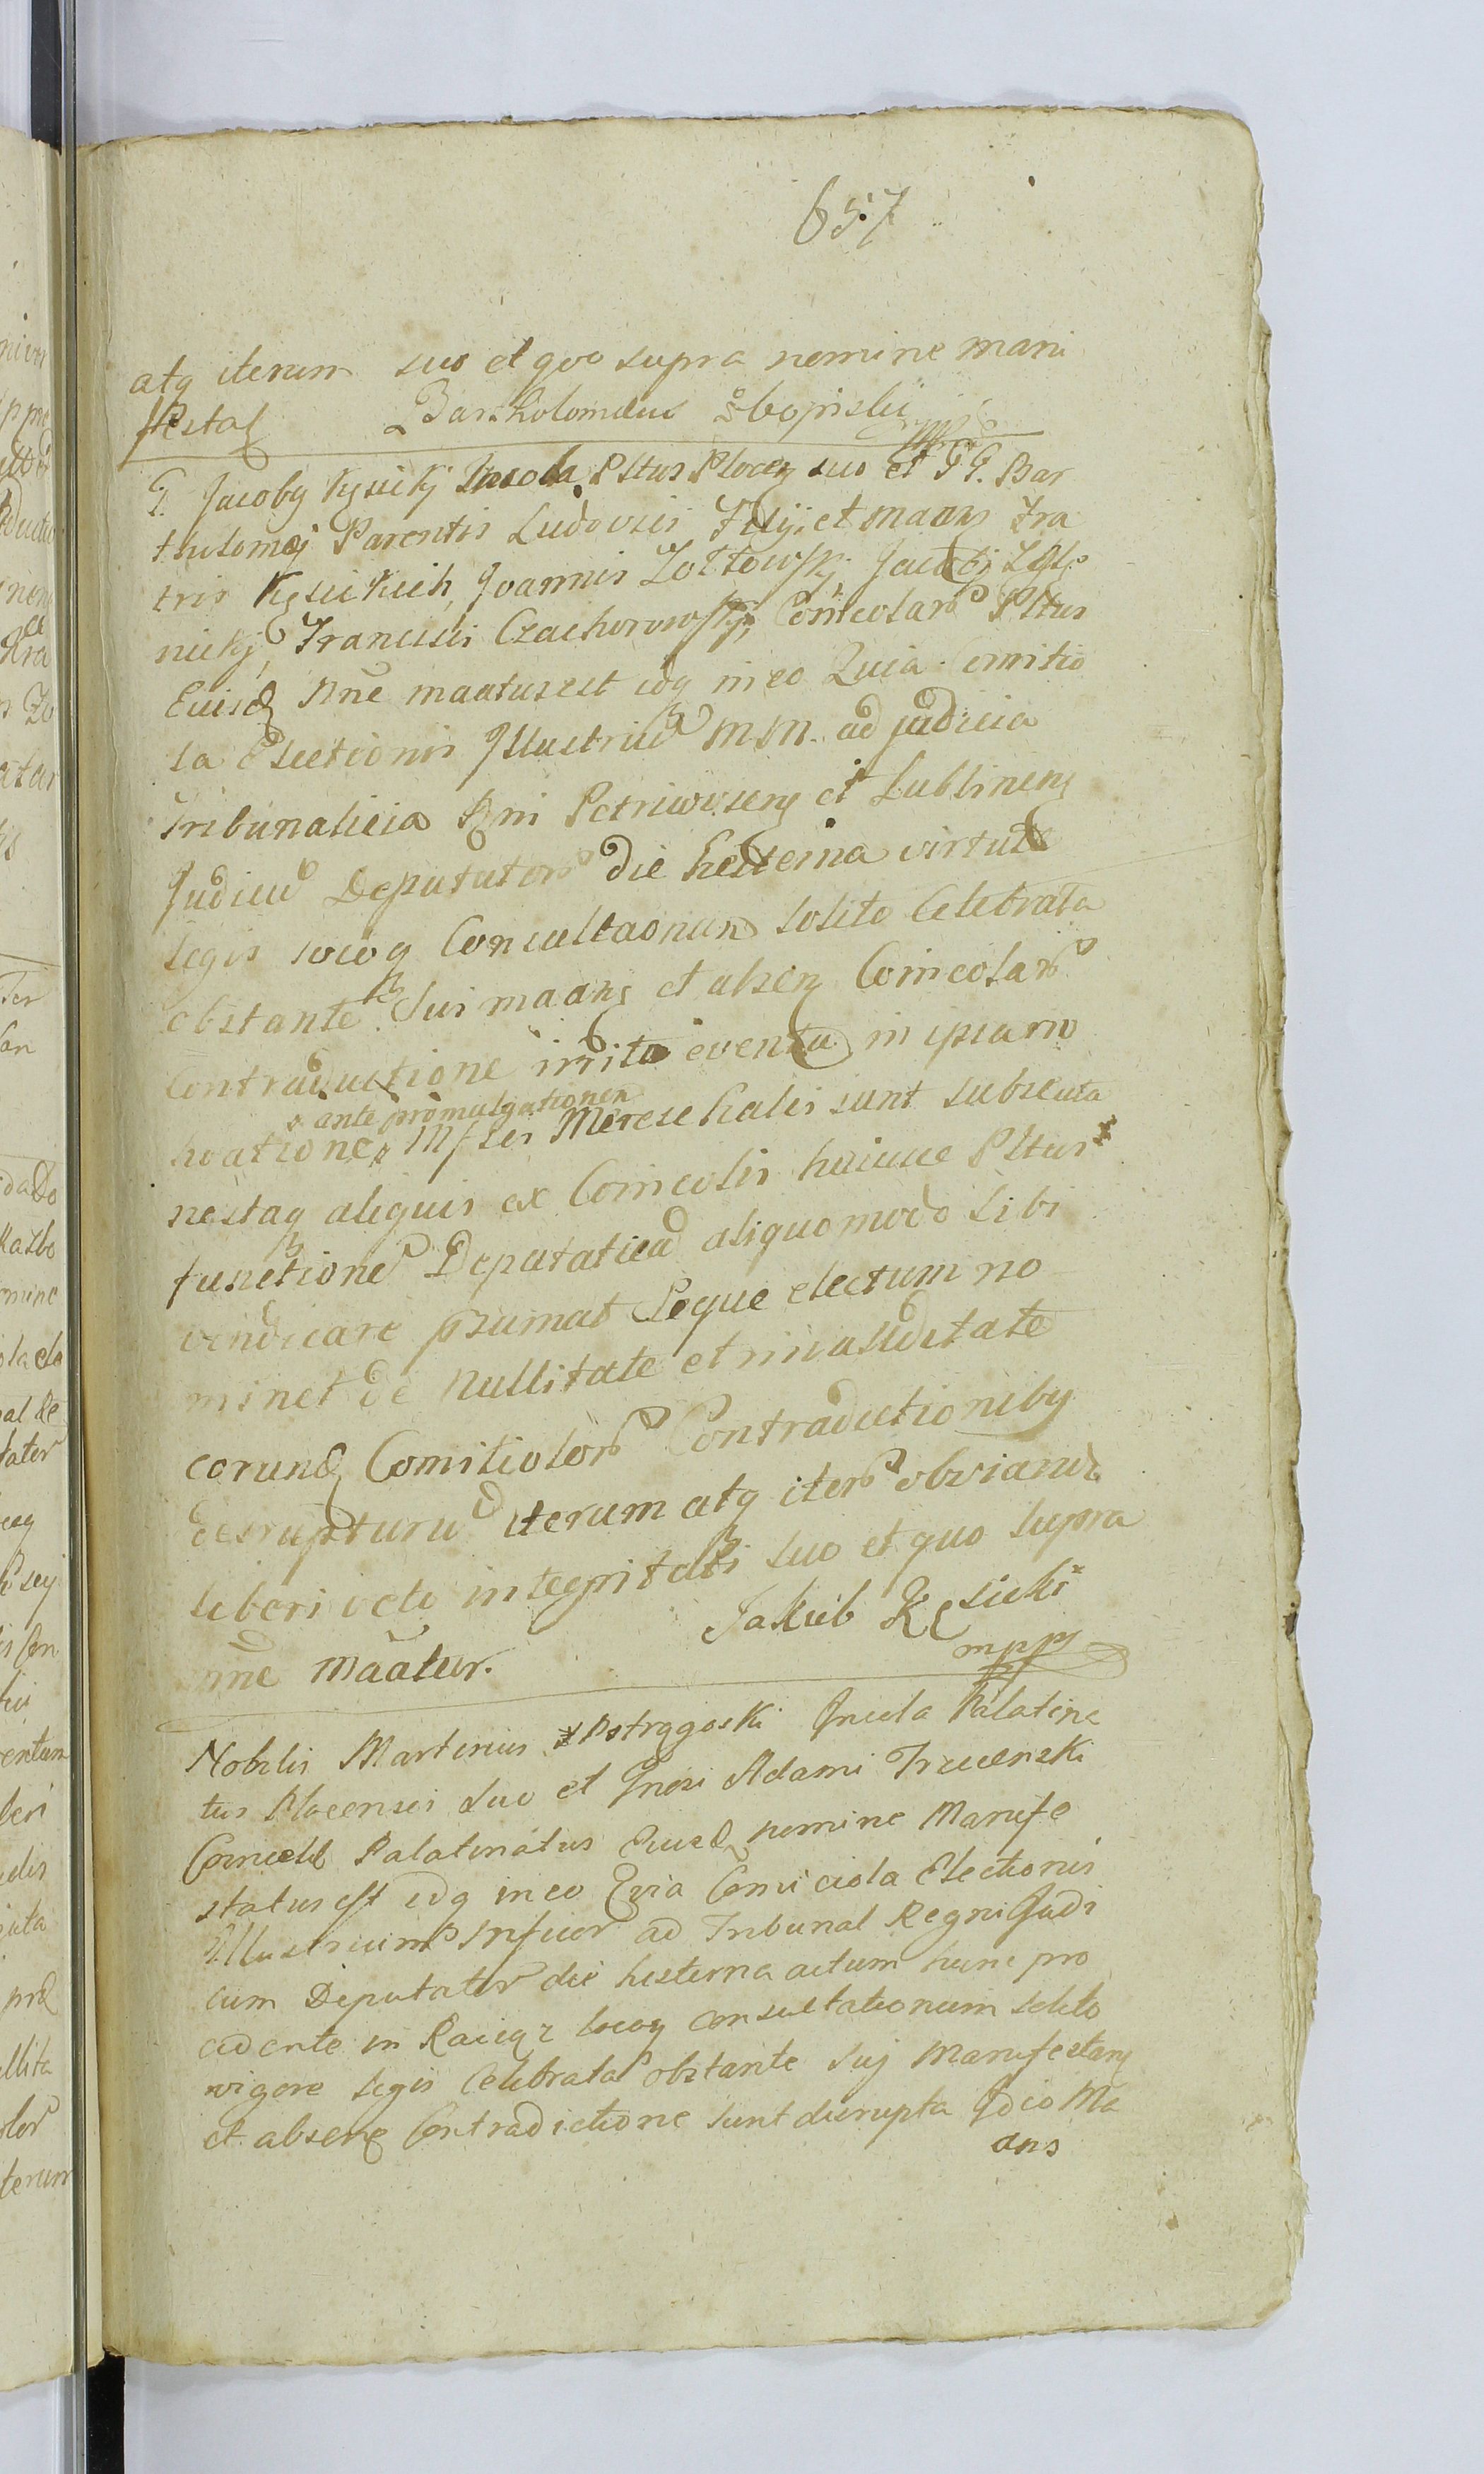 657
atq iterum suo et quo supra nomine mani
festat Bartholomeus
G. Jacobg Kęsickj Incola Pltus Plocen suo et GG. Bar
tholomej Parentis Ludovici Filij, et maans Fra
tris Kęsickich, Joannis Zołtowskj, Jacobj
nickj, Francisci Czachorowskj, Coincolarũ Pltus
Eiusd nne maatus est idq in eo Quia Comitio
la Electionis Illustriũ MM. ad judicia
Tribunalicia Rgni Petricovsen et Lublinen
Judicũ Deputatorũ die hesterna virtute
legis locoq Consultaonum solito Celebrata
obstante sui maans et absen Coincolarũ
Contradictione irrito eventu in ipsam
x ante promulgationem
hoatione x Mfsci Mereschalis sunt subsecuta
nestaq aliquis ex Coincolis huiusce Pltus
functione Deputaticã aliquo modo sibi
vendicare psumat seque electum no
minet de Nullitate et invaliditate
eorund Comitiolorũ Contradictionibg
desrupturũ iterum atq iterũ obviand
liberi veto integritati suo et quo supra
nne maatur. Jakub Kęsicki
mpp
Nobilis Martinus Pstrągoski Incola Palatina
tus Plocensis suo et Gnosi Adami Trzcienski
Coincolæ Palatinatus Eiusd nomine Manife
status est idq in eo Quia Comiciola Electionis
Illustrium Mficor ad Tribunal Regni Judi
cum Deputator die hesterna actum hunc pro
cedente in Raciąż locoq consultationum solito
vigore legis Celebrata obstante suj Manifestans
et absens Contradictione sunt disrupta Jdeo Ma
ans